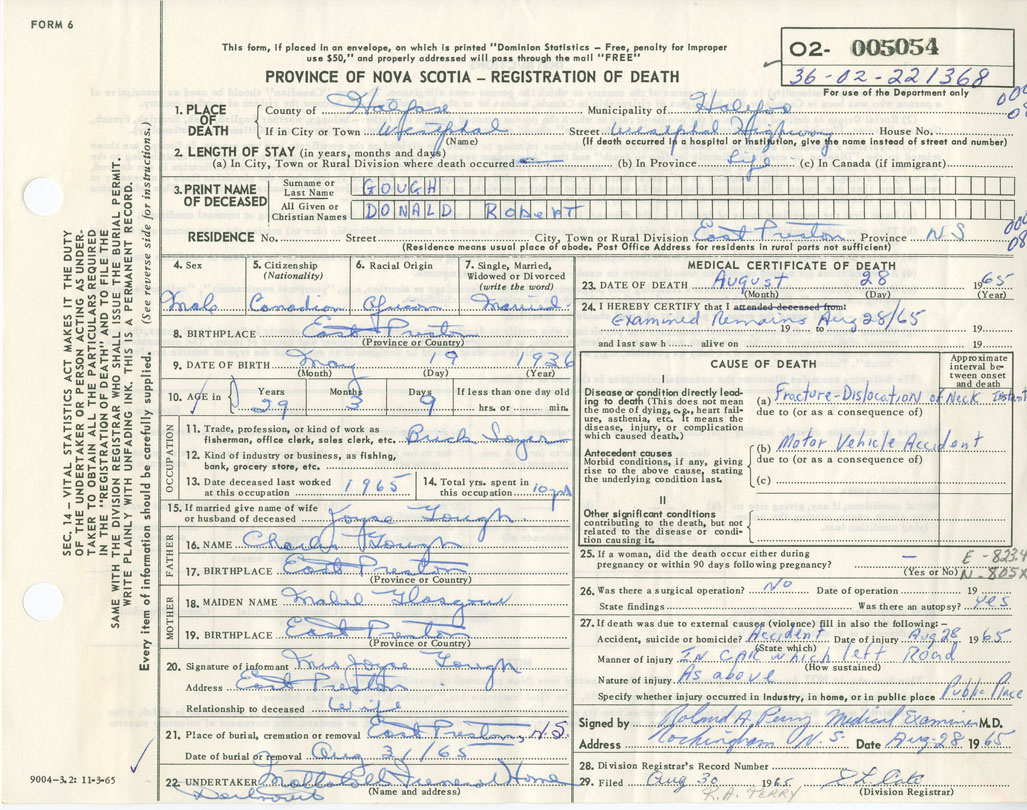 FORM 6
This form, if placed in an envelope, on which is printed "Dominion Statistics – Free, penalty for improper
use $50," and properly addressed will pass through the mail "FREE"
PROVINCE OF NOVA SCOTIA – REGISTRATION OF DEATH
O2- 005054
36-02-221368
For use of the Department only
1. PLACE OF DEATH
County of Halifax Municipality of Halifax
If in City or Town Westphal Street Westphal Highway House No.
(Name) (If death occurred in a hospital or institution, give the name instead of street and number)
2. LENGTH OF STAY (in years, months and days)
(a) In City, Town or Rural Division where death occurred — (b) In Province Life (c) In Canada (if immigrant)
3. PRINT NAME OF DECEASED
Surname or Last Name GOUGH
All Given or Christian Names DONALD RobERT
RESIDENCE No. Street City, Town or Rural Division East Preston Province NS
(Residence means usual place of abode. Post Office Address for residents in rural parts not sufficient)
4. Sex 5. Citizenship (Nationality) 6. Racial Origin 7. Single, Married, Widowed or Divorced (write the word)
Male Canadian African Married
8. BIRTHPLACE East Preston
(Province or Country)
9. DATE OF BIRTH May 19 1936
(Month) (Day) (Year)
10. AGE in Years Months Days If less than one day old
29 3 9 hrs. or min.
OCCUPATION
11. Trade, profession, or kind of work as
fisherman, office clerk, sales clerk, etc. Brick Layer
12. Kind of industry or business, as fishing,
bank, grocery store, etc.
13. Date deceased last worked
at this occupation 1965
14. Total yrs. spent in
this occupation 10 yrs
15. If married give name of wife
or husband of deceased Joyse Gough
FATHER
16. NAME Charles Gough
17. BIRTHPLACE East Preston
(Province or Country)
MOTHER
18. MAIDEN NAME Mabel Glasgow
19. BIRTHPLACE East Preston
(Province or Country)
20. Signature of informant Mrs Joyse Gough
Address East Preston
Relationship to deceased Wife
21. Place of burial, cremation or removal East Preston, N.S.
Date of burial or removal Aug 31/65
22. UNDERTAKER Funeral Home
(Name and address)
Dartmouth
MEDICAL CERTIFICATE OF DEATH
23. DATE OF DEATH August 28 1965
(Month) (Day) (Year)
24. I HEREBY CERTIFY that I attended deceased from:
Examined Remains Aug 28/65
19 19 19
and last saw h alive on 19
CAUSE OF DEATH
Approximate interval between onset and death
I
Disease or condition directly leading to death (This does not mean the mode of dying, e.g., heart failure, asthenia, etc. It means the disease, injury, or complication which caused death.)
(a) Fracture-Dislocation of Neck Instant
due to (or as a consequence of)
Antecedent causes
Morbid conditions, if any, giving rise to the above cause, stating the underlying condition last.
(b) Motor Vehicle Accident
due to (or as a consequence of)
(c)
II
Other significant conditions
contributing to the death, but not related to the disease or condition causing it.
25. If a woman, did the death occur either during
pregnancy or within 90 days following pregnancy? —
(Yes or No)
E-823.4
N-805X
26. Was there a surgical operation? No Date of operation 19
State findings Was there an autopsy? yes
27. If death was due to external causes (violence) fill in also the following:–
Accident, suicide or homicide? Accident Date of injury Aug 28 1965
(State which)
Manner of injury IN CAR which left Road
(How sustained)
Nature of injury As above
Specify whether injury occurred in Industry, in home, or in public place Public Place
Signed by Roland A. Perry Medical Examiner M.D.
Address Rockingham N.S. Date Aug-28 1965
28. Division Registrar's Record Number
29. Filed Aug 30 1965
(Division Registrar)
R.A. PERRY
SEC. 14 – VITAL STATISTICS ACT MAKES IT THE DUTY
OF THE UNDERTAKER OR PERSON ACTING AS UNDER-
TAKER TO OBTAIN ALL THE PARTICULARS REQUIRED
IN THE "REGISTRATION OF DEATH" AND TO FILE THE
SAME WITH THE DIVISION REGISTRAR WHO SHALL ISSUE THE BURIAL PERMIT.
WRITE PLAINLY WITH UNFADING INK. THIS IS A PERMANENT RECORD.
Every item of information should be carefully supplied. (See reverse side for instructions.)
9004–3.2: 11-3-65